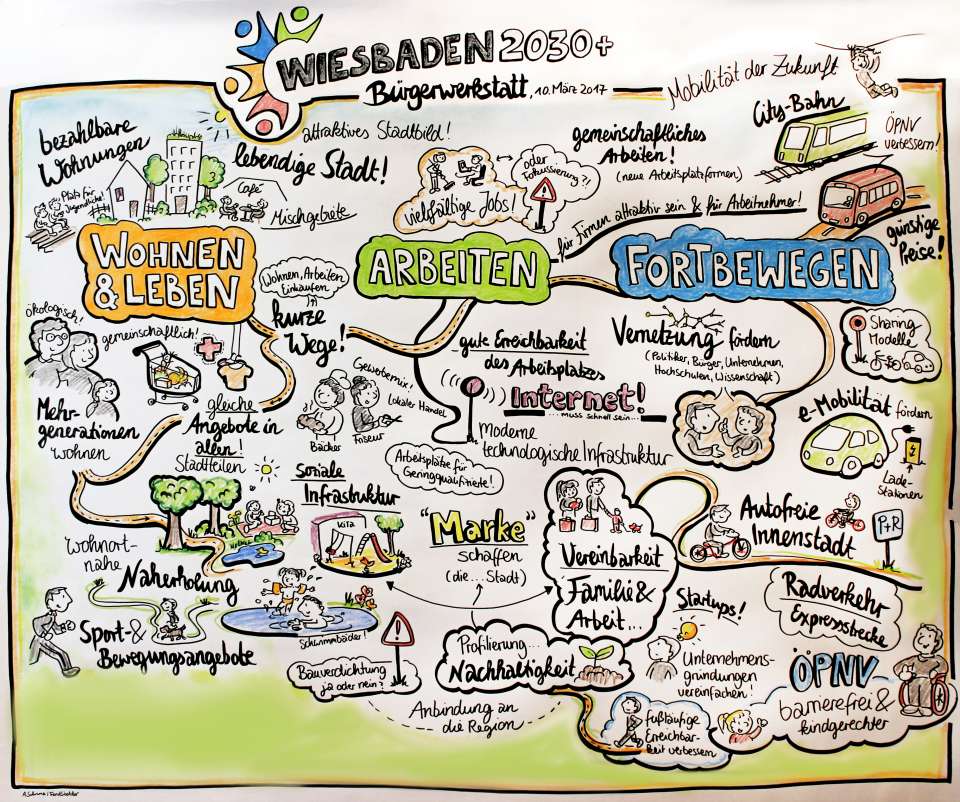 WIESBADEN 2030+
Bürgerwerkstatt, 10. März 2017
bezahlbare
Wohnungen
Platz für
Jugendliche!
attraktives Stadtbild!
lebendige Stadt!
Café
Mischgebiete
WOHNEN
& LEBEN
ökologisch!
gemeinschaftlich!
Mehr-
generationen
wohnen
gleiche
Angebote in
allen!
Stadtteilen
Wohnen, Arbeiten
Einkaufen
in
kurze
Wege!
Gewerbemix!
Lokaler Handel
Bäcker
Friseur
soziale
Infrastruktur
Kita
wohnort-
nahe
Naherholung
Sport- &
Bewegungsangebote
Schwimmbäder!
Bauverdichtung
ja oder nein?
vielfältige Jobs!
oder
Fokussierung?!
gemeinschaftliches
Arbeiten!
(neue Arbeitsplatzformen)
für Firmen attraktiv sein & für Arbeitnehmer!
ARBEITEN
gute Erreichbarkeit
des Arbeitsplatzes
Internet!
...muss schnell sein...
Moderne
technologische Infrastruktur
Arbeitsplätze für
Geringqualifizierte!
"Marke"
schaffen
(die ... Stadt)
Vereinbarkeit
Familie &
Arbeit...
Profilierung...
Nachhaltigkeit
Anbindung an
die Region
Startups!
Unternehmens-
gründungen
vereinfachen!
Mobilität der Zukunft
City-Bahn
ÖPNV
verbessern!
günstige
Preise!
FORTBEWEGEN
Vernetzung fördern
(Politiker, Bürger, Unternehmen,
Hochschulen, Wissenschaft)
Sharing
Modelle
e-Mobilität fördern
Lade-
stationen
Autofreie
Innenstadt
P+R
Radverkehr
Expressstrecke
ÖPNV
barrierefrei &
kindgerechter
fußläufige
Erreichbar-
keit verbessern